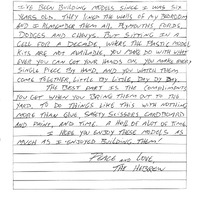 I'VE BEEN BUILDING MODELS SINCE I WAS SIX
YEARS OLD. THEY LINED THE WALLS OF MY BEDROOM
AND I REMEMBER THEM ALL. PLYMOUTHS, FORDS,
DODGES AND CHEVYS. BUT SITTING IN A
CELL FOR A DECADE, WHERE THE PLASTIC MODEL
KITS ARE NOT AVAILABLE, YOU MAKE DO WITH WHAT
EVER YOU CAN GET YOUR HANDS ON. YOU MAKE EVERY
SINGLE PIECE BY HAND, AND YOU WATCH THEM
COME TOGETHER, LITTLE BY LITTLE, DAY BY DAY.
THE BEST PART IS THE COMPLIMENTS
YOU GET WHEN YOU BRING THEM OUT TO THE
YARD. TO DO THINGS LIKE THIS WITH NOTHING
MORE THAN GLUE, SAFETY SCISSORS, CARDBOARD
AND PAINT, AND TIME. A HELL OF A LOT OF TIME.
I HOPE YOU ENJOY THESE MODELS AS
MUCH AS I ENJOYED BUILDING THEM!
PEACE AND LOVE,
THE HEBREW